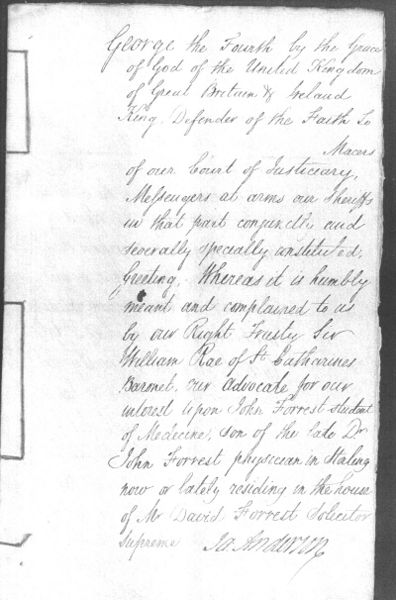 George the Fourth by the Grace
of God of the United Kingdom
of Great Britain & Ireland
King. Defender of the Faith To
Macers
of our Court of Justiciary,
Messengers at arms our Sheriffs
in that part conjunctly and
severally specially constituted,
Greeting, Whereas it is humbly
meant and complained to us
by our Right Trusty Sir
William Rae of St Catharines
Baronet, our Advocate for our
interest upon John Forrest student
of Medecine, son of the late Dr
John Forrest physician in Stirling
now or lately residing in the house
of Mr David Forrest Solicitor
supreme Ja Anderson